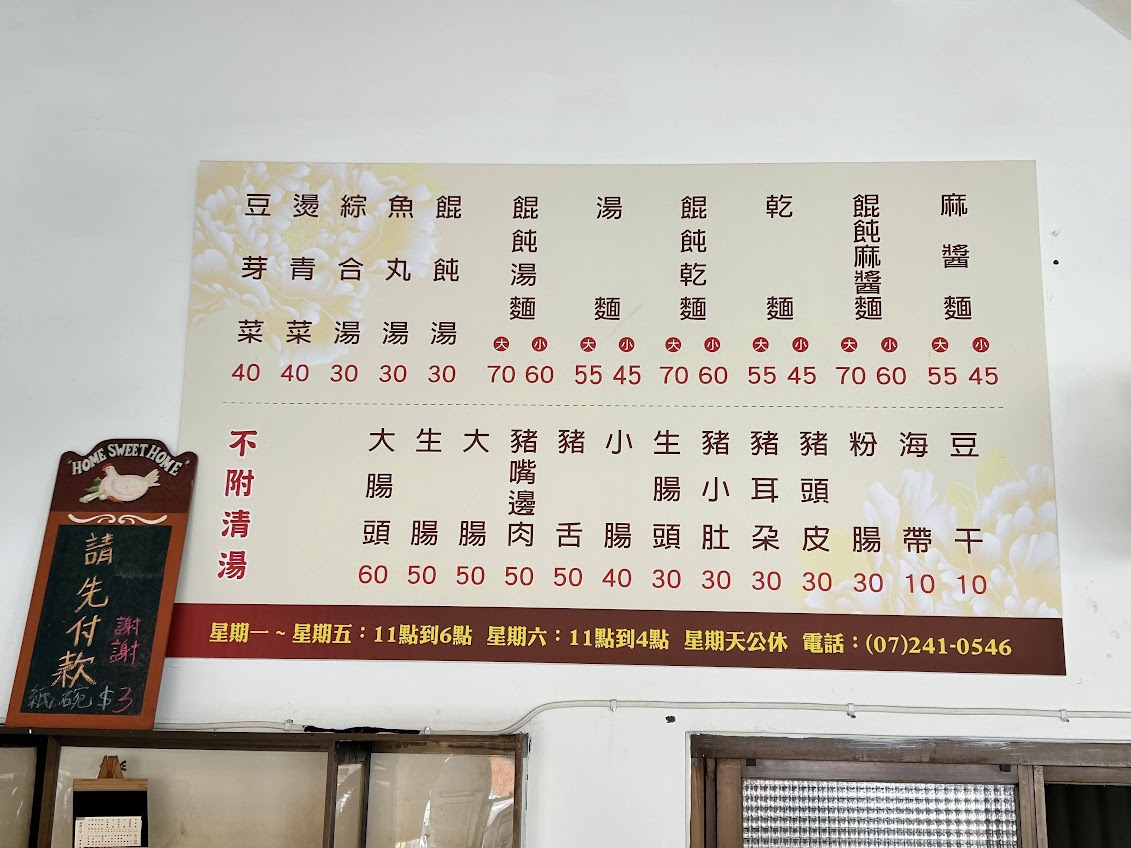 麻醬麵 大55 小45
餛飩麻醬麵 大70 小60
乾麵 大55 小45
餛飩乾麵 大70 小60
湯麵 大55 小45
餛飩湯麵 大70 小60
餛飩湯 30
魚丸湯 30
綜合湯 30
燙青菜 40
豆芽菜 40
豆干 10
海帶 10
粉腸 30
豬頭皮 30
豬耳朶 30
豬小肚 30
生腸頭 30
小腸 40
豬舌 50
豬嘴邊肉 50
大腸 50
生腸 50
大腸頭 60
不附清湯
星期一~星期五：11點到6點 星期六：11點到4點 星期天公休 電話：(07)241-0546
HOME SWEET HOME
請先付款
謝謝
紙碗$3